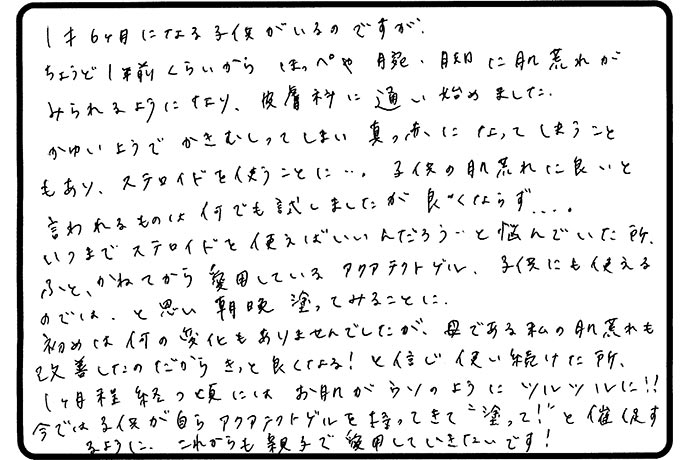 1才6ヶ月になる子供がいるのですが、
ちょうど1年前くらいから ほっぺや 腕・脚に肌荒れが
みられるようになり、皮膚科に通い始めました。
かゆいようで かきむしってしまい 真っ赤に なってしまうこと
もあり、ステロイドを使うことに…。子供の肌荒れに良いと
言われるものは何でも試しましたが良くならず…。
いつまでステロイドを使えばいいんだろう…と悩んでいた所、
ふと、かねてから愛用しているアクアテクトゲル、子供にも使える
のでは、と思い朝晩塗ってみることに。
初めは何の変化もありませんでしたが、母である私の肌荒れも
改善したのだからきっと良くなる!と信じ使い続けた所、
1ヶ月程経つ頃には お肌がウソのように ツルツルに!!
今では子供が自らアクアテクトゲルを持ってきて"塗って!"と催促す
るように、これからも親子で愛用していきたいです!